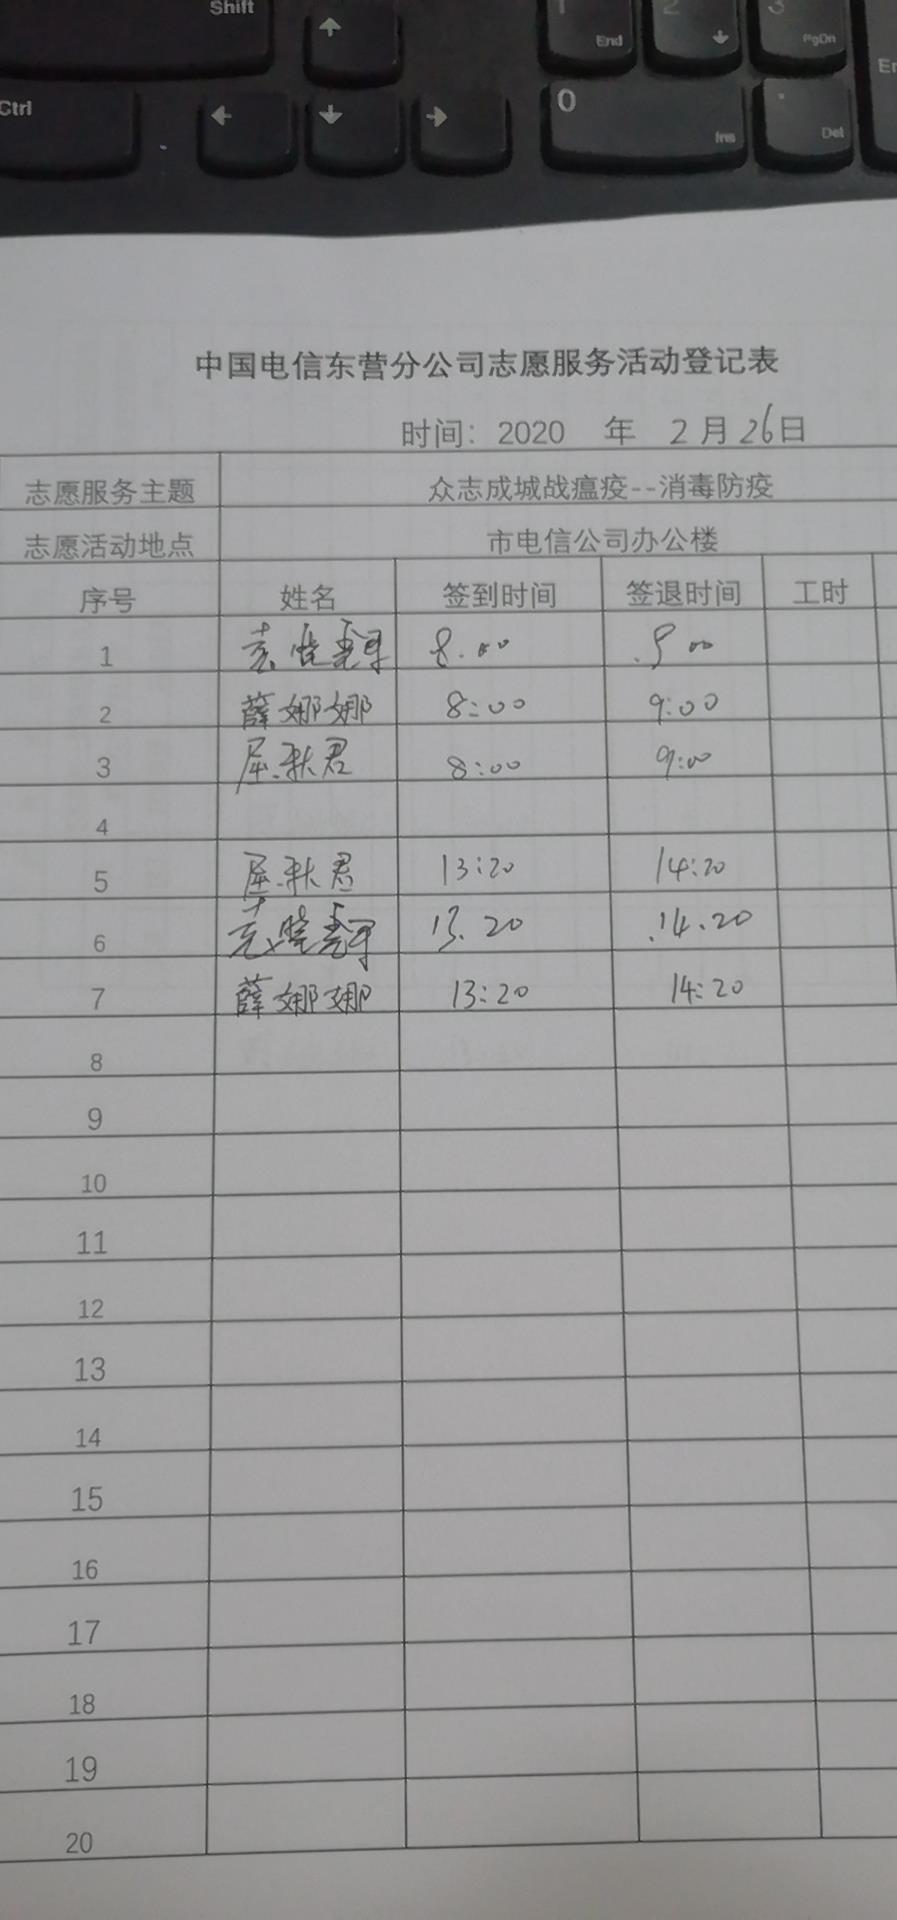 Shift
1 End
2
3 PgDn
Ctrl
0 Ins
. Del
中国电信东营分公司志愿服务活动登记表
时间：2020 年 2月26日
志愿服务主题 众志成城战瘟疫--消毒防疫
志愿活动地点 市电信公司办公楼
序号 姓名 签到时间 签退时间 工时
1 8.00 9 00
2 薛娜娜 8:00 9:00
3 屈秋君 8:00 9:00
4
5 屈秋君 13:20 14:20
6 13.20 14.20
7 薛娜娜 13:20 14:20
8
9
10
11
12
13
14
15
16
17
18
19
20